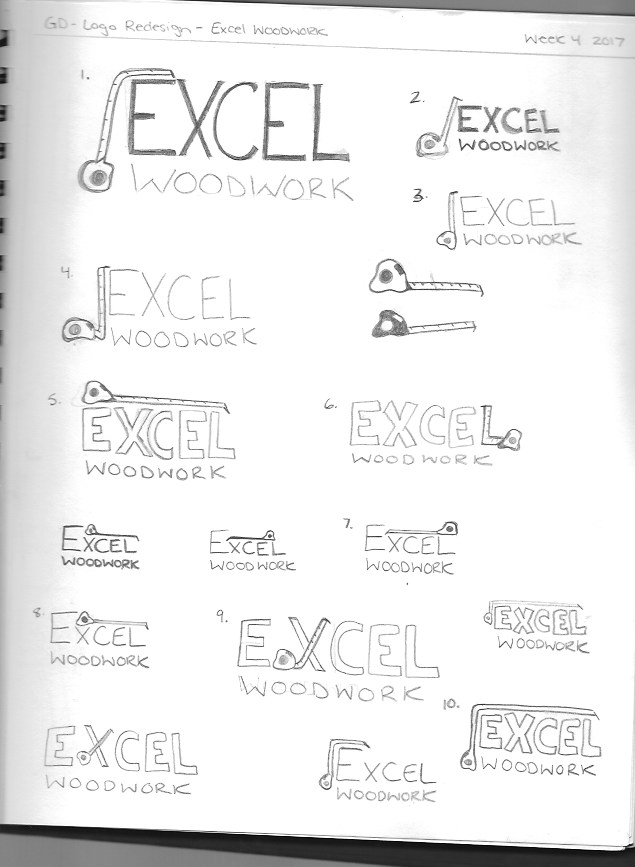 GD - Logo Redesign - Excel WOODWORK
WEEK 4 2017
1.
EXCEL
WOODWORK
2.
EXCEL
WOODWORK
3.
EXCEL
WOODWORK
4.
EXCEL
WOODWORK
5.
EXCEL
WOODWORK
6.
EXCEL
WOODWORK
EXCEL
WOODWORK
EXCEL
WOODWORK
7.
EXCEL
WOODWORK
8.
EXCEL
WOODWORK
9.
EXCEL
WOODWORK
EXCEL
WOODWORK
10.
EXCEL
WOODWORK
EXCEL
WOODWORK
EXCEL
WOODWORK